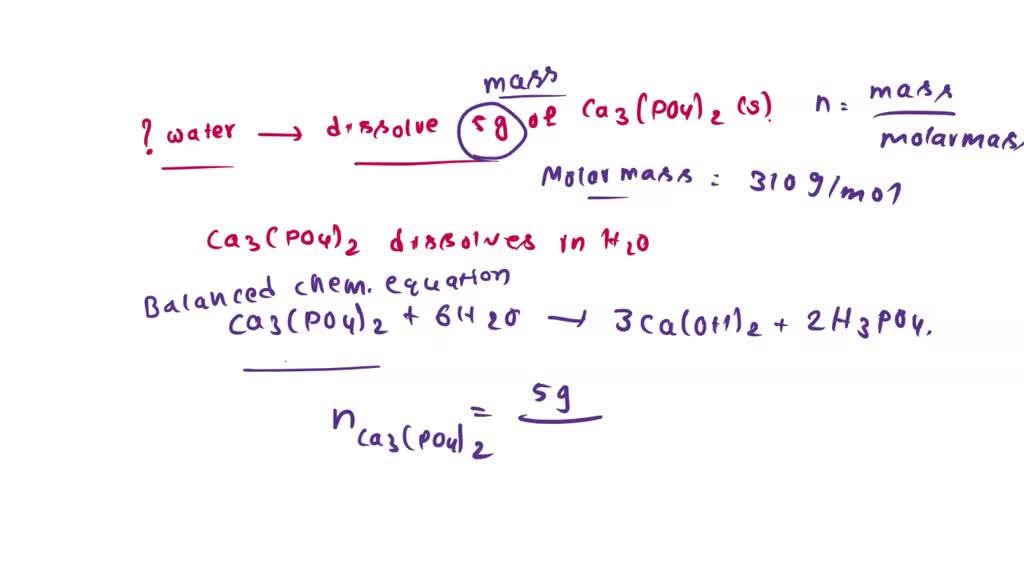 mass
? water → dissolve 5g of Ca3(PO4)2 (s). n = mass / molarmass
Molar mass = 310 g/mol
Ca3(PO4)2 dissolves in H2O
Balanced chem. equation
Ca3(PO4)2 + 6H2O → 3Ca(OH)2 + 2H3PO4.
nCa3(PO4)2 = 5g